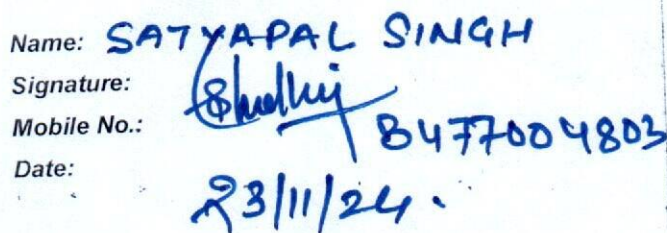 Name: SATYAPAL SINGH
Signature:
Mobile No.: 8477004803
Date: 23/11/24.